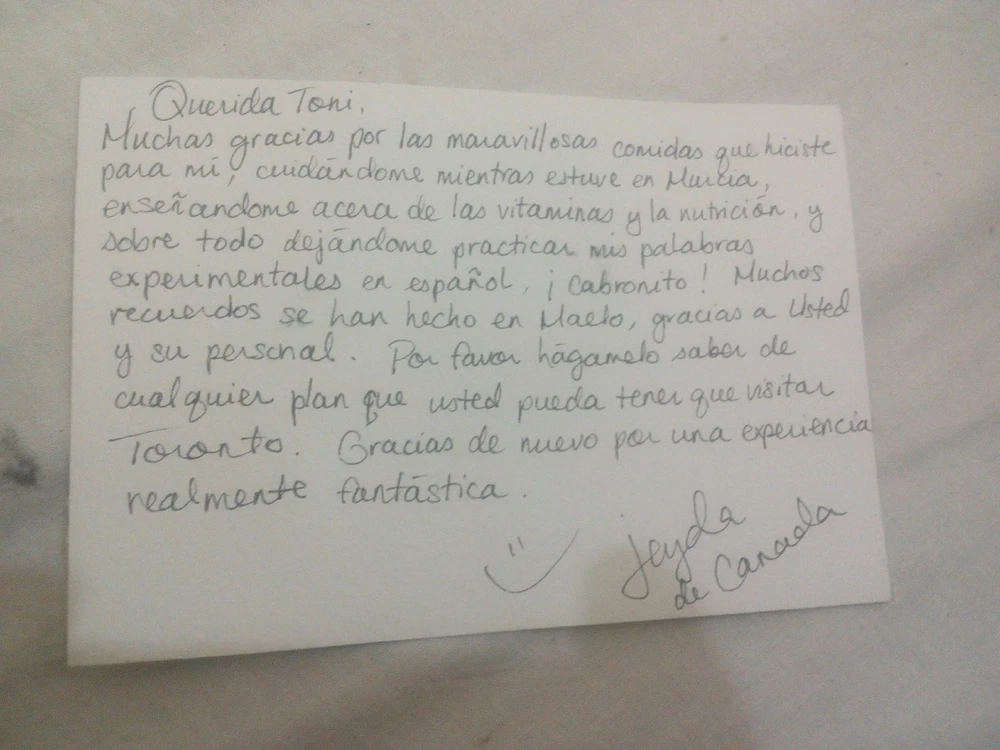 Querida Toni,
Muchas gracias por las maravillosas comidas que hiciste
para mí, cuidándome mientras estuve en Murcia,
enseñandome acerca de las vitaminas y la nutrición, y
sobre todo dejándome practicar mis palabras
experimentales en español, ¡Cabronito! Muchos
recuerdos se han hecho en Maelo, gracias a Usted
y su personal. Por favor hágamelo saber de
cualquier plan que usted pueda tener que visitar
Toronto. Gracias de nuevo por una experiencia
realmente fantástica.
Jeyda
de Canada